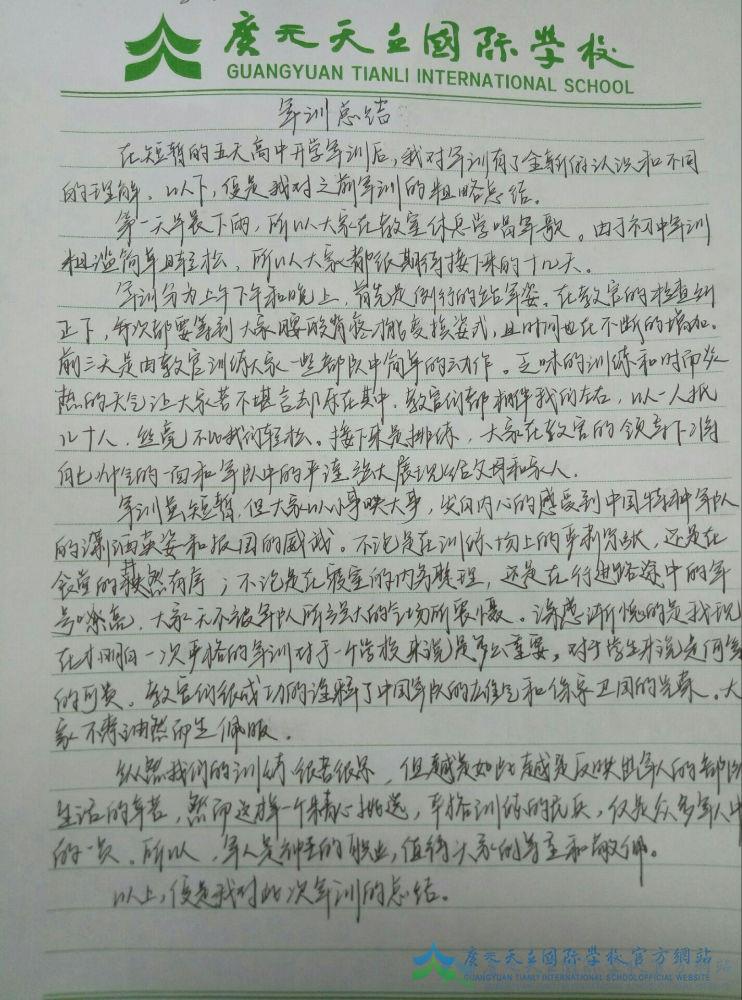 廣元天立國際學校
GUANGYUAN TIANLI INTERNATIONAL SCHOOL
军训总结
在短暂的五天高中开学军训后，我对军训有了全新的认识和不同
的理解、以下，便是我对之前军训的粗略总结。
第一天早晨下雨，所以大家在教室休息学唱军歌。由于初中军训
粗滥简单且轻松，所以大家都很期待接下来的十几天。
军训分为上午下午和晚上，首先是例行的站军姿。在教官的检查纠
正下，每次都要等到大家腰酸背疼才能变换姿式，且时间也在不断的增加。
前三天是由教官训练大家一些部队中简单的动作。乏味的训练和时而炎
热的天气让大家苦不堪言却乐在其中，教官们都相伴我们左右，以一人抵
几十人，丝毫不比我们轻松。接下来是排练，大家在教官的领导下将
自己帅气的一面和军队中的严谨强大展现给父母和家人。
军训虽短暂，但大家以小事映大事，发自内心的感受到中国特种军队
的潇洒英姿和报国的威武。不论是在训练场上的严肃紧张，还是在
食堂的井然有序；不论是在寝室的内务整理，还是在行进路途中的军
号嘹亮，大家无不被军队所强大的气场所震慑。深感惭愧的是我现
在才明白一次严格的军训对于一个学校来说是多么重要，对于学生来说是何等
的可贵。教官们很成功的诠释了中国军队的雄气和保家卫国的光荣。大
家不禁油然而生佩服。
纵然我们的训练很苦很累，但越是如此越是反映出军人的部队
生活的辛苦，然而这才一个精心挑选，严格训练的民兵，仅是众多军人中
的一员。所以，军人是神圣的职业，值得大家的尊重和敬佩。
以上，便是我对此次军训的总结。
廣元天立國際學校官方網站
GUANGYUAN TIANLI INTERNATIONAL SCHOOLOFFICIAL WEBSITE